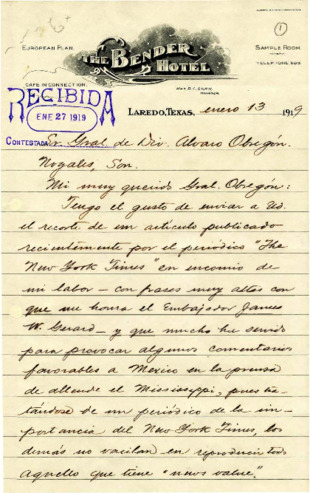 EUROPEAN PLAN.
THE BENDER HOTEL
SAMPLE ROOM
1
CAFE IN CONNECTION.
RECIBIDA
ENE 27 1919
CONTESTADA
LAREDO, TEXAS, enero 13 1919
Sr. Gral. de Div. Alvaro Obregón.
Nogales, Son.
Mi muy querido Gral. Obregón:
Tengo el gusto de enviar a Ud.
el recorte de un artículo publicado
recientemente por el periódico "The
New York Times" en encomio de
mi labor - con frases muy altas con
que me honra el Embajador James
W. Gerard - y que mucho ha servido
para provocar algunos comentarios
favorables a Mexico en la prensa
de allende el Mississippi, pues tra-
tándose de un periódico de la im-
portancia del New York Times, los
demás no vacilan en reproducir todo
aquello que tiene "news value".